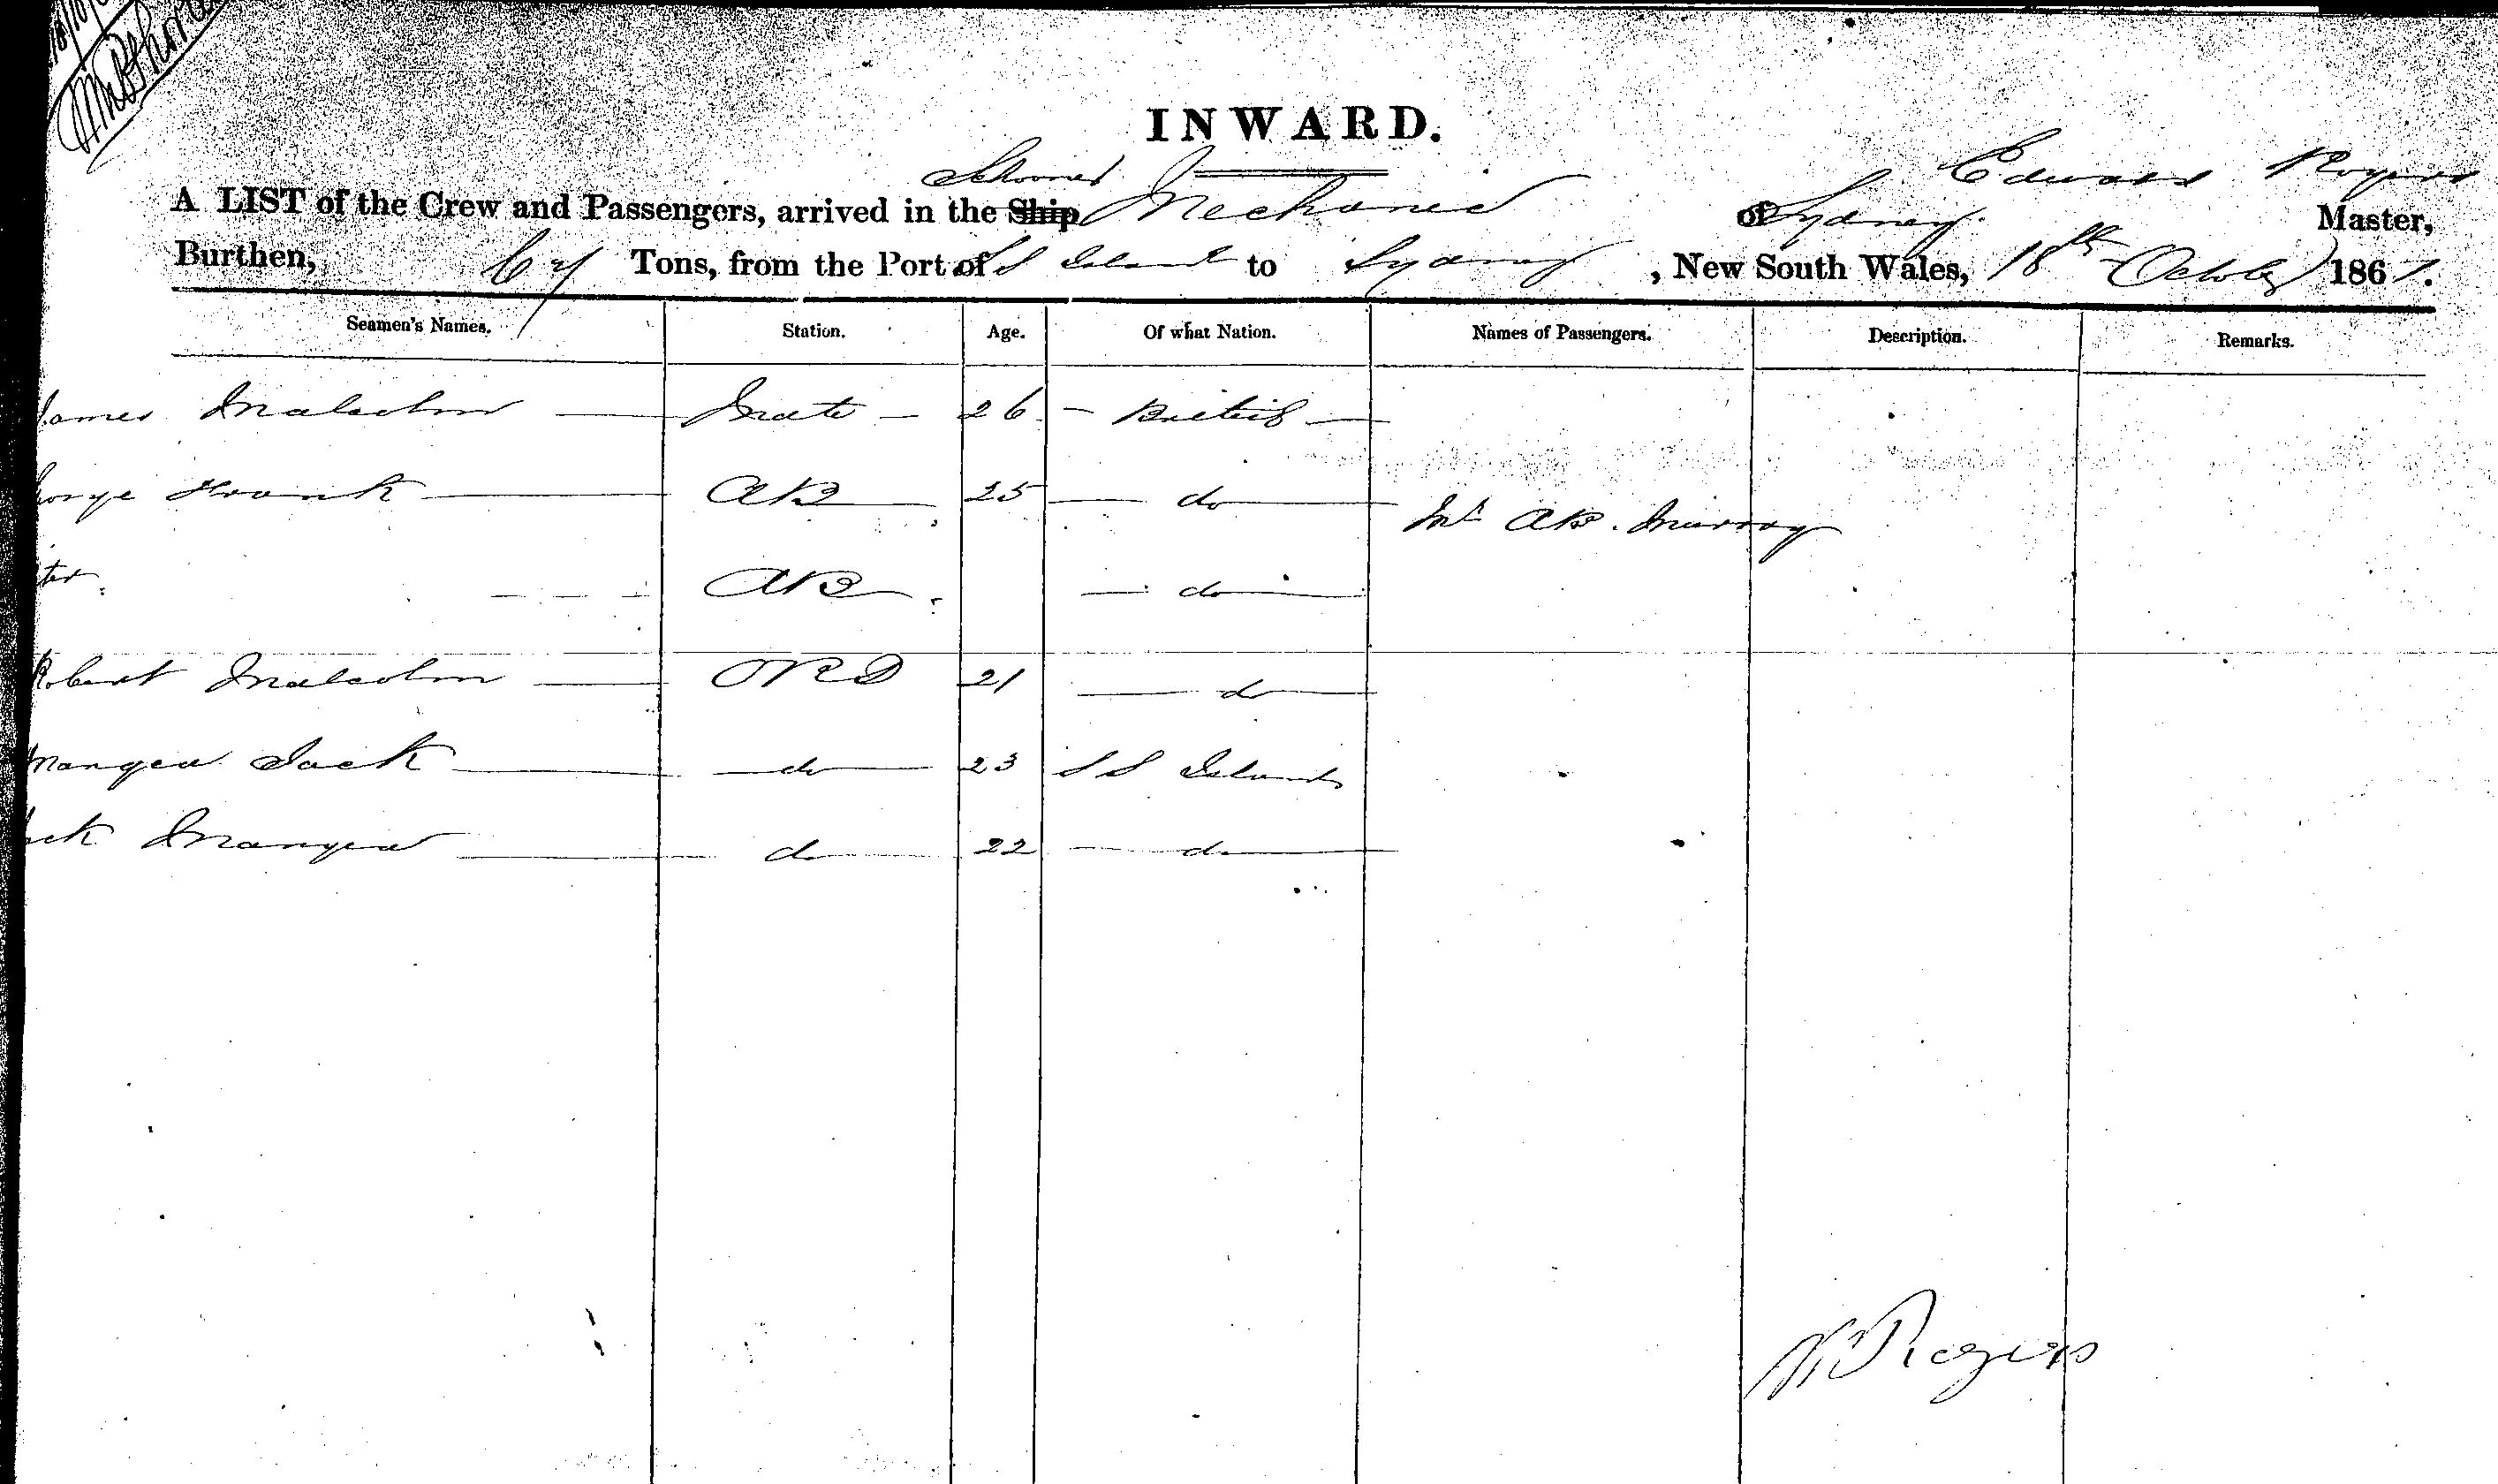 INWARD.
Schooner Edward Rogers
A LIST of the Crew and Passengers, arrived in the Ship Mechanic of Sydney Master,
Burthen, Tons, from the Port of S S Island to Sydney, New South Wales, 18th October 1867.
Seamen's Names. Station. Age. Of what Nation. Names of Passengers. Description. Remarks.
James Malcolm Mate 26 British
George Frank AB 25 do
Mr AB. Murray
AB do
Robert Malcolm ORD 21 do
Jack do 23 S S Islands
do 22 do
Rogers